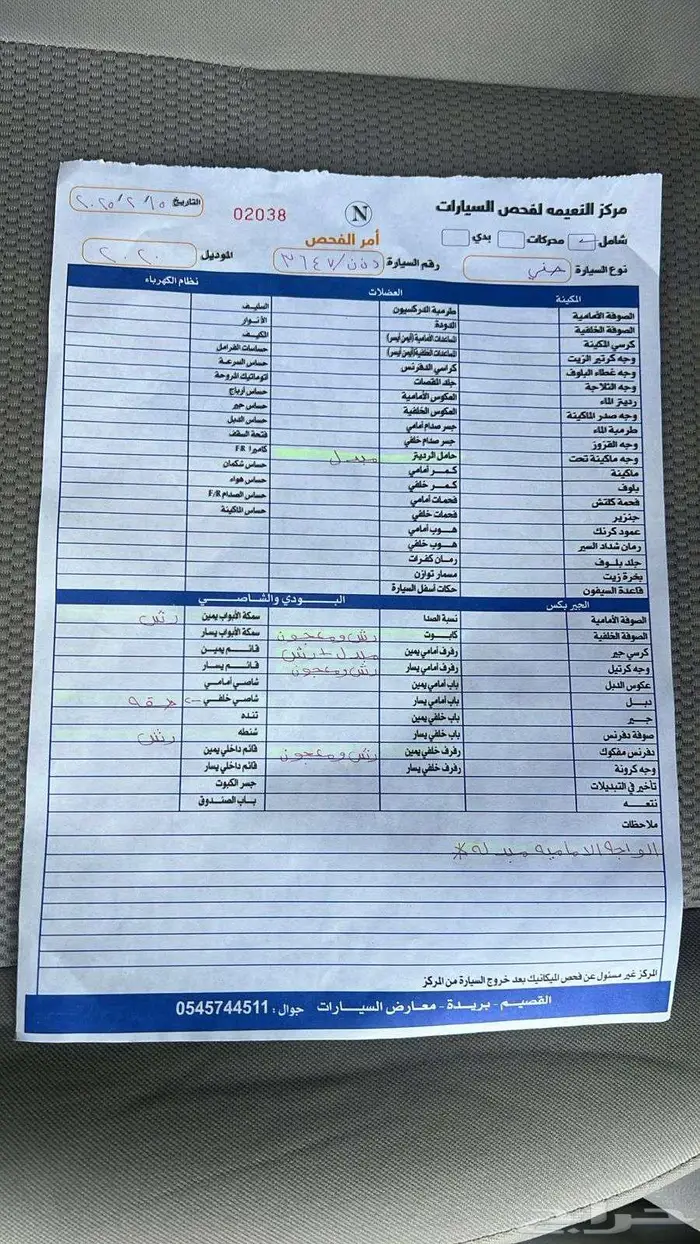 مركز النعيمه لفحص السيارات
N
02038
التاريخ ٢٠٢٥/٢/١٥
شامل محركات بدي
أمر الفحص
نوع السيارة رقم السيارة ٣٦٤٧ الموديل ٢٠٢٠
المكينة العضلات نظام الكهرباء
الصوفة الأمامية طرمبة الدركسيون السليف
الصوفة الخلفية الدودة الأنوار
كرسي المكينة المساعدات الأمامية (أيمن أيسر) الكيف
وجه كرتير الزيت المساعدات الخلفية (أيمن أيسر) حساسات الفرامل
وجه غطاء البلوف كراسي الدفرنس حساس السرعة
وجه الثلاجة جلد المقصات أتوماتيك المروحة
رديتر الماء العكوس الأمامية حساس أرباج
وجه صدر الماكينة العكوس الخلفية حساس جير
طرمبة الماء جسر صدام أمامي حساس الدبل
وجه القزوز جسر صدام خلفي فتحة السقف
وجه ماكينة تحت حامل الرديتر مبدل كاميرا F\R
ماكينة كمر أمامي حساس شكمان
بلوف كمر خلفي حساس هواء
فحمة كلتش فحمات أمامي حساس الصدام F/R
جنزير فحمات خلفي حساس الماكينة
عمود كرنك هوب أمامي
رمان شداد السير هوب خلفي
جلد بلوف رمان كفرات
بخرة زيت مسمار توازن
قاعدة السيفون حكات أسفل السيارة
الجير بكس البودي والشاصي
الصوفة الأمامية نسبة الصدا سمكة الأبواب يمين رش
الصوفة الخلفية كبوت رش ومعجون سمكة الأبواب يسار
كرسي جير رفرف أمامي يمين مبدل + رش قائم يمين
وجه كرتيل رفرف أمامي يسار رش ومعجون قائم يسار
عكوس الدبل باب أمامي يمين شاصي أمامي
دبل باب أمامي يسار شاصي خلفي
جير باب خلفي يمين تنده
صوفة دفرنس باب خلفي يسار شنطه رش
دفرنس مفكوك رفرف خلفي يمين رش ومعجون قائم داخلي يمين
وجه كرونة رفرف خلفي يسار قائم داخلي يسار
تأخير في التبديلات جسر الكبوت
نتعه باب الصندوق
ملاحظات
الواجهة الامامية مبدلة *
المركز غير مسئول عن فحص الميكانيك بعد خروج السيارة من المركز
القصيم - بريدة - معارض السيارات جوال : 0545744511
حراج